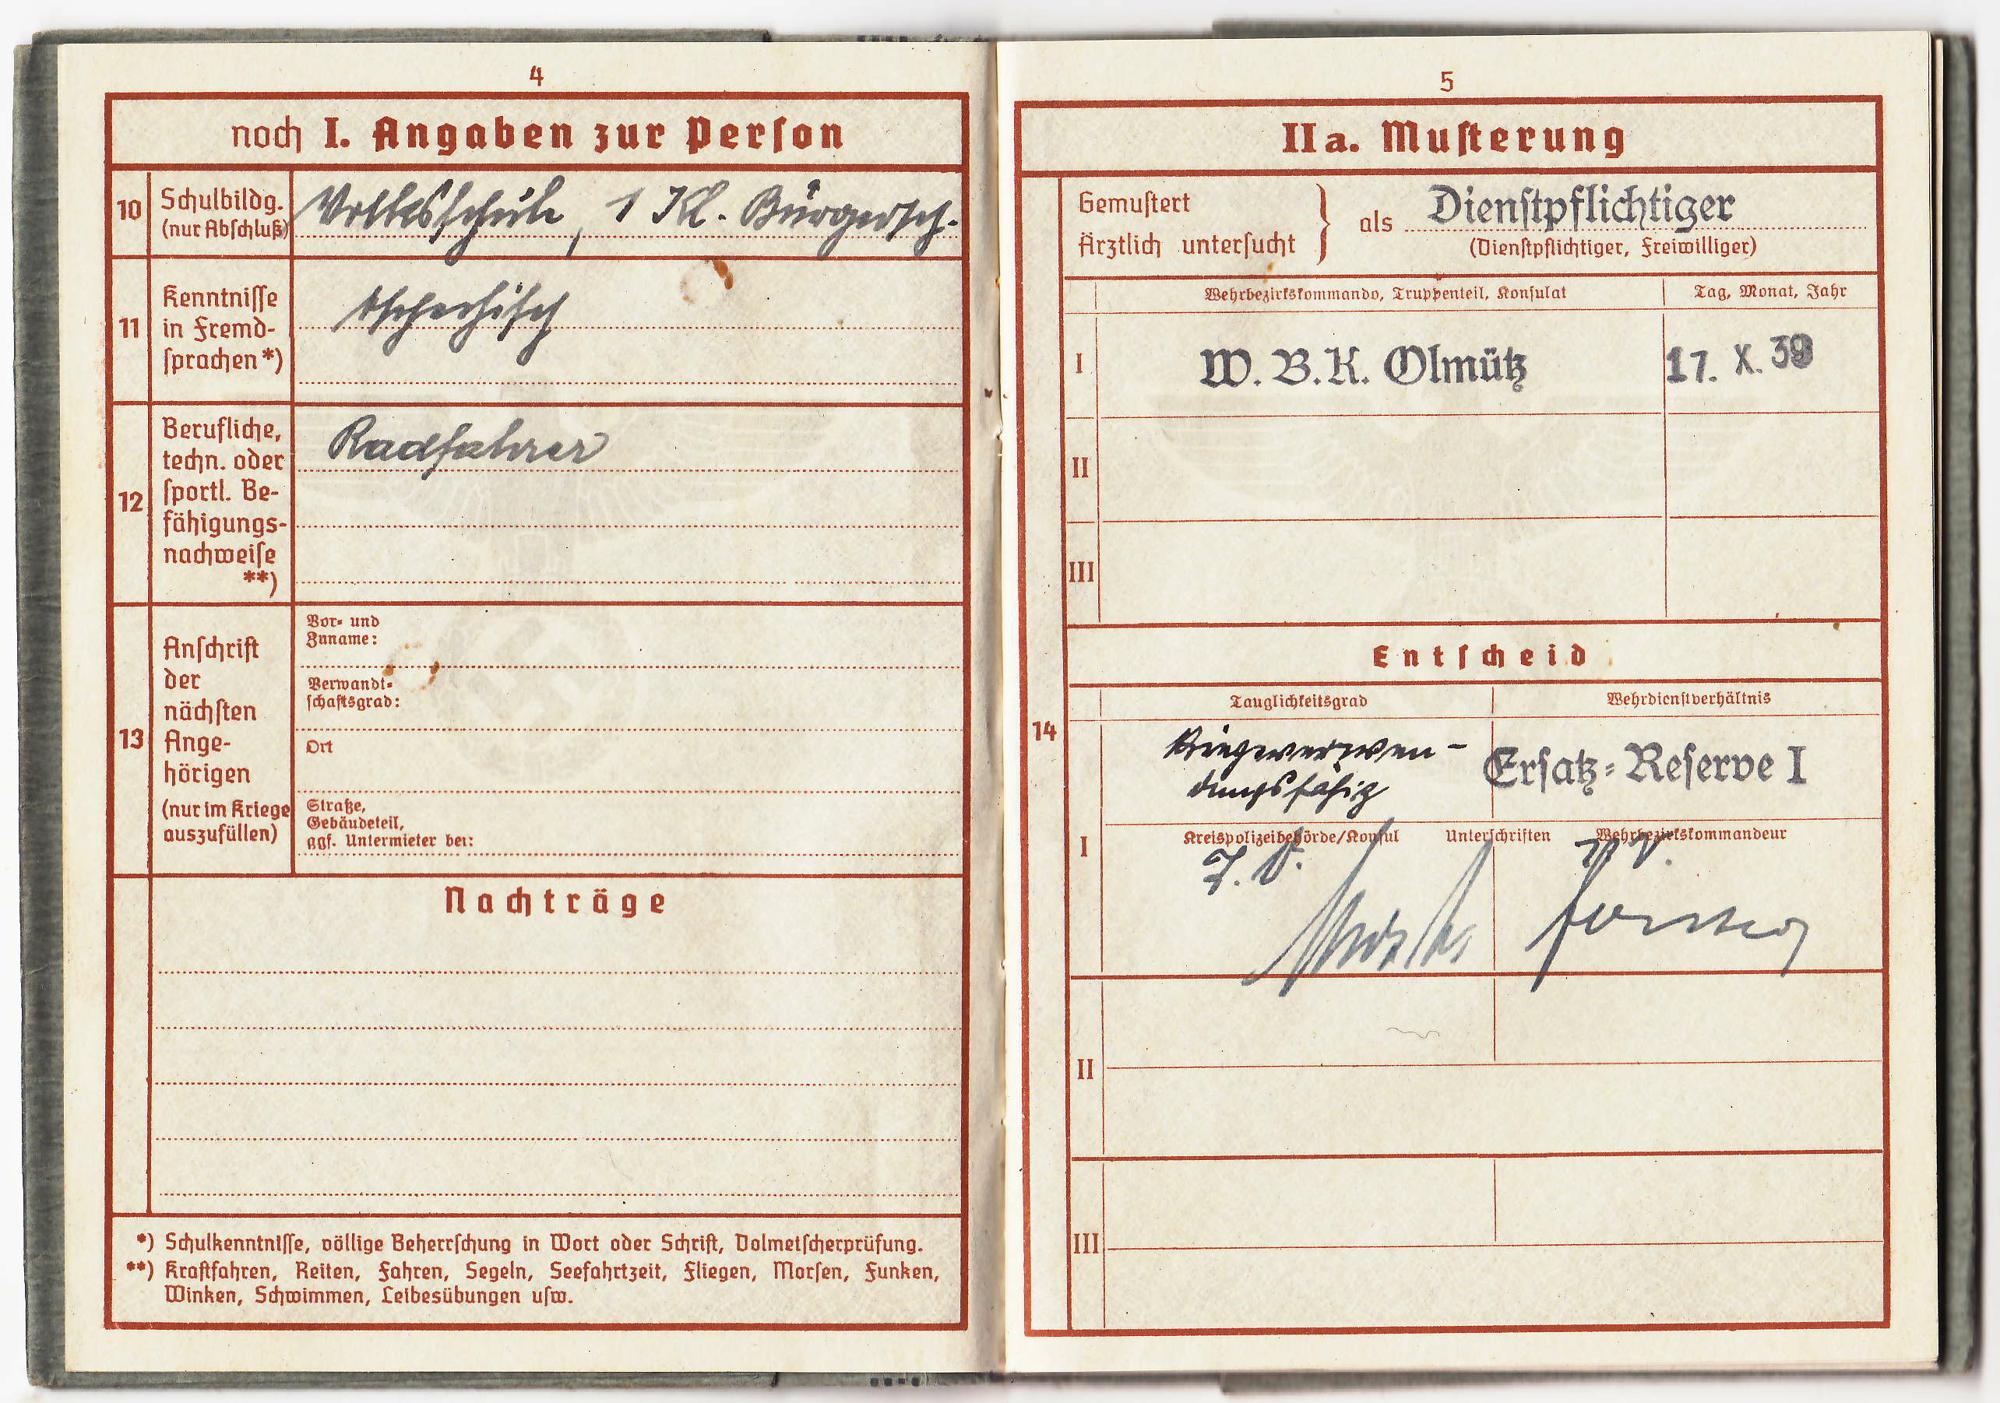 4
noch I. Angaben zur Person
10 Schulbildg. (nur Abschluß)
Volksschule, 1 Kl. Bürgersch.
11 Kenntnisse in Fremdsprachen *)
tschechisch
12 Berufliche,
techn. oder
sportl. Be-
fähigungs-
nachweise
**)
Radfahrer
13 Anschrift
der
nächsten
Ange-
hörigen
(nur im Kriege
auszufüllen)
Vor- und
Zuname:
Verwandt-
schaftsgrad:
Ort
Straße,
Gebäudeteil,
ggf. Untermieter bei:
Nachträge
*) Schulkenntnisse, völlige Beherrschung in Wort oder Schrift, Dolmetscherprüfung.
**) Kraftfahren, Reiten, Fahren, Segeln, Seefahrtzeit, Fliegen, Morsen, Funken,
Winken, Schwimmen, Leibesübungen usw.
5
IIa. Musterung
Gemustert
Ärztlich untersucht
als Dienstpflichtiger
(Dienstpflichtiger, Freiwilliger)
Wehrbezirkskommando, Truppenteil, Konsulat
Tag, Monat, Jahr
I W.B.K. Olmütz 17. X. 39
II
III
Entscheid
14
Tauglichkeitsgrad
Wehrdienstverhältnis
Kriegsverwen-
dungsfähig
Ersatz-Reserve I
I
Kreispolizeibehörde/Konsul Unterschriften Wehrbezirkskommandeur
II
III